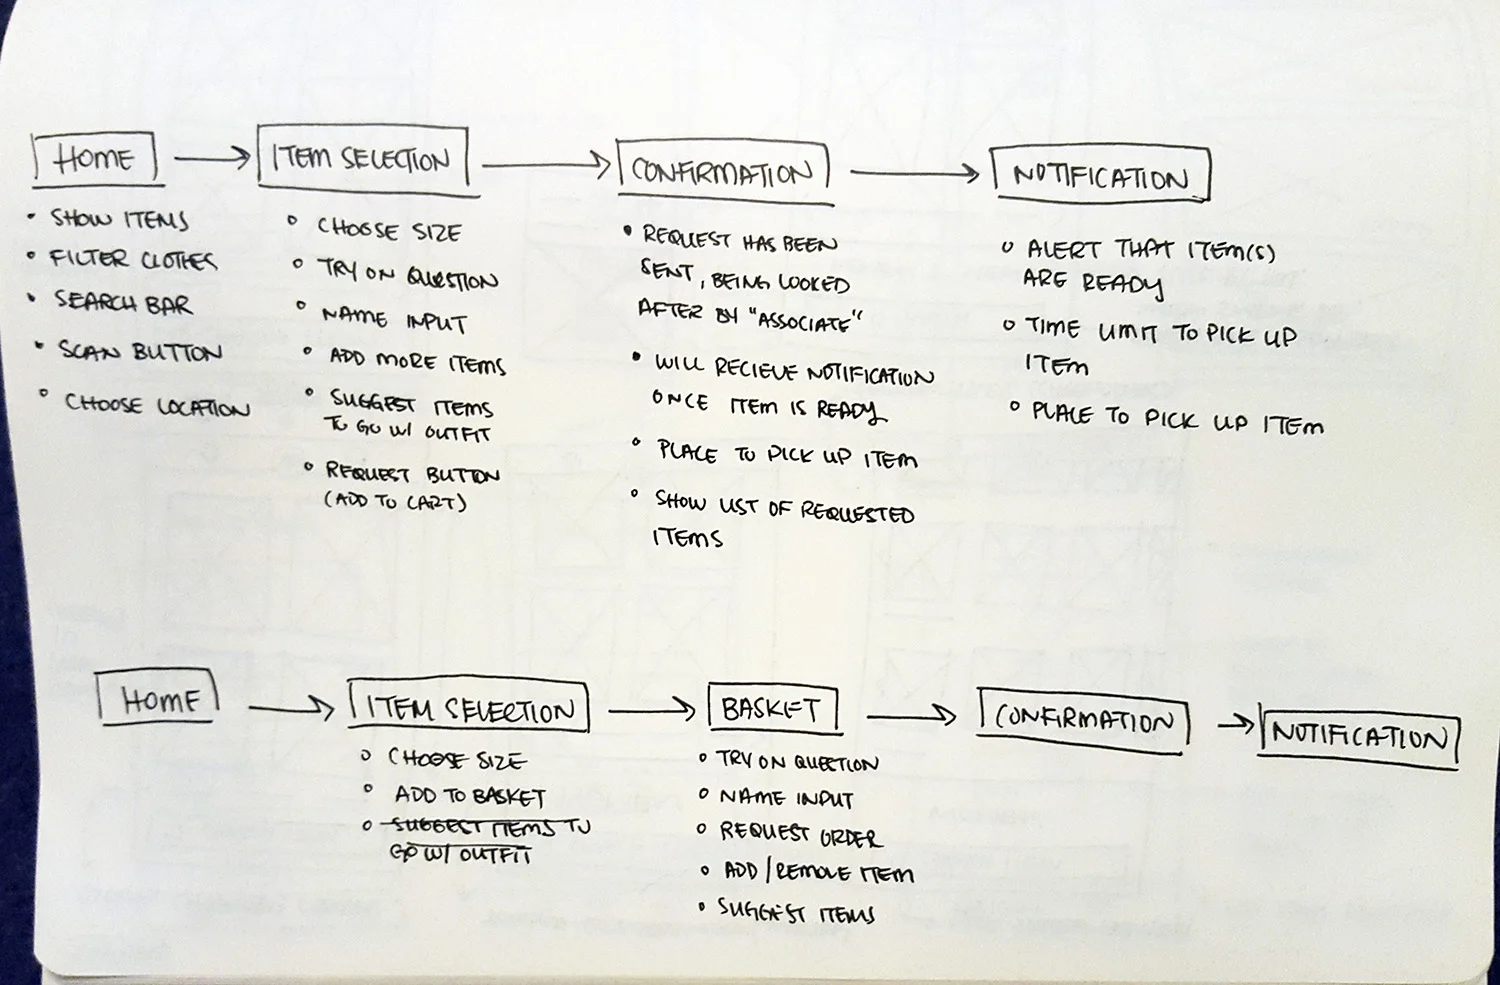 HOME
ITEM SELECTION
CONFIRMATION
NOTIFICATION
• SHOW ITEMS
• FILTER CLOTHES
• SEARCH BAR
• SCAN BUTTON
• CHOOSE LOCATION
• CHOOSE SIZE
• TRY ON QUESTION
• NAME INPUT
• ADD MORE ITEMS
• SUGGEST ITEMS
TO GO W/ OUTFIT
• REQUEST BUTTON
(ADD TO CART)
• REQUEST HAS BEEN
SENT, BEING LOOKED
AFTER BY "ASSOCIATE"
• WILL RECIEVE NOTIFICATION
ONCE ITEM IS READY
• PLACE TO PICK UP ITEM
• SHOW LIST OF REQUESTED
ITEMS
• ALERT THAT ITEM(S)
ARE READY
• TIME LIMIT TO PICK UP
ITEM
• PLACE TO PICK UP ITEM
HOME
ITEM SELECTION
BASKET
CONFIRMATION
NOTIFICATION
• CHOOSE SIZE
• ADD TO BASKET
• SUGGEST ITEMS TO
GO W/ OUTFIT
• TRY ON QUESTION
• NAME INPUT
• REQUEST ORDER
• ADD / REMOVE ITEM
• SUGGEST ITEMS